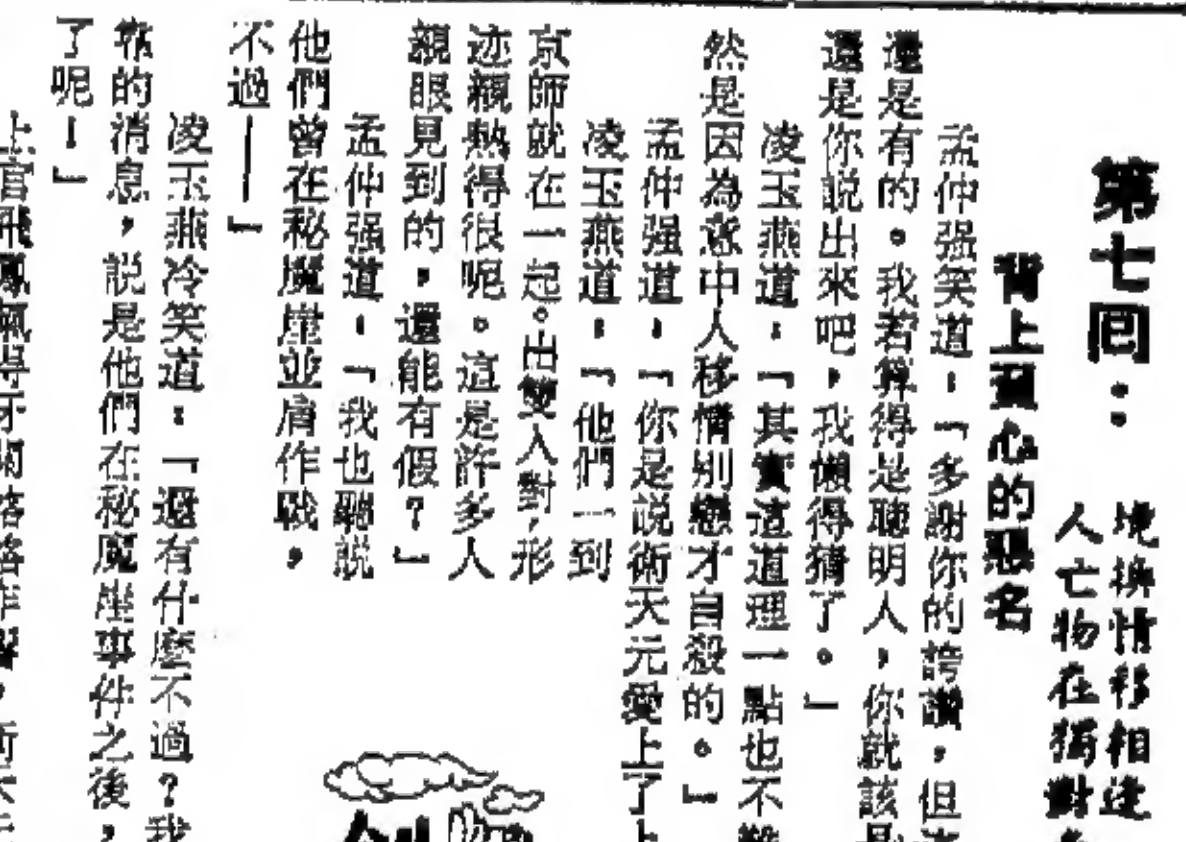 第七回：
境換情移相逢
人亡物在獨對
背上負心的惡名
孟仲强笑道：「多謝你的誇讚，但
還是有的。我若算得是聰明人，你就該是
還是你説出來吧，我懶得猜了。」
凌玉燕道：「其實這道理一點也不難
然是因為意中人移情別戀才自殺的。」
孟仲强道：「你是説衛天元愛上了上
凌玉燕道：「他們一到
京師就在一起。出雙入對，形
迹親熱得很呢。這是許多人
親眼見到的，還能有假？」
孟仲强道：「我也聽説
他們曾在秘魔崖並肩作戰，
不過——」
凌玉燕冷笑道：「還有什麼不過？我
靠的消息，説是他們在秘魔崖事件之後，
了呢！」
上官飛鳳氣得牙關格格作響，衛天